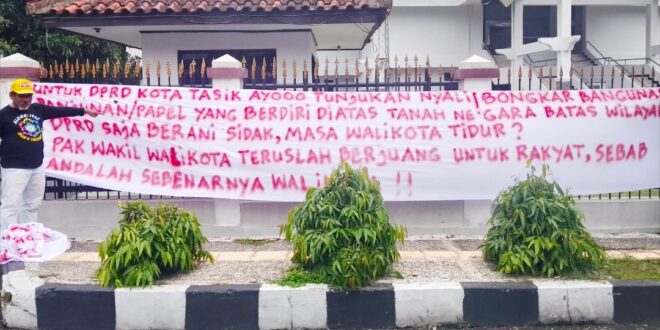 UNTUK DPRD KOTA TASIK AYOOO TUNJUKAN NYALI!! BONGKAR BANGUNA
BANGUNAN/PADEL YANG BERDIRI DIATAS TANAH NE'GARA BATAS WILAYA
DPRD SAJA BERANI SIDAK, MASA WALIKOTA TIDUR?
PAK WAKIL WALIKOTA TERUSLAH BERJUANG UNTUK RAKYAT, SEBAB
ANDALAH SEBENARNYA !!